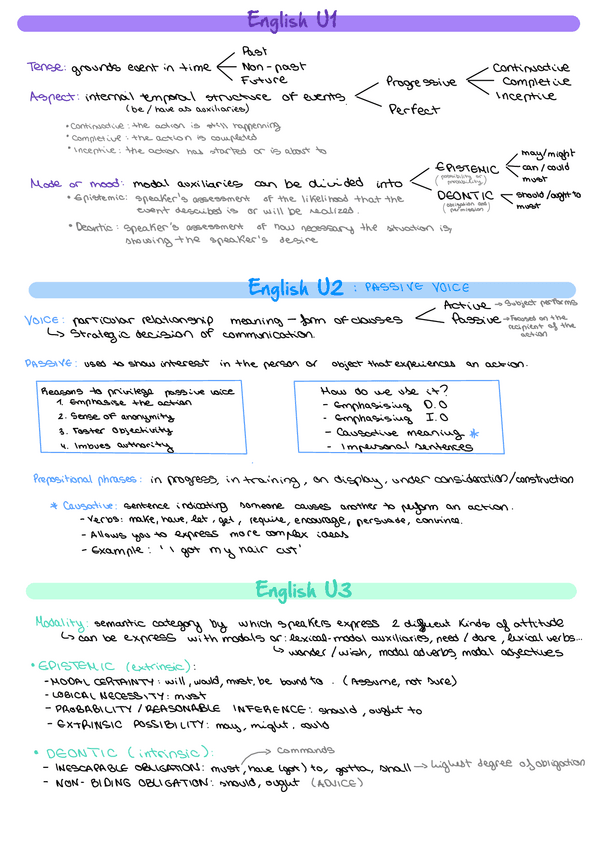 English U1
Past
Tense: grounds event in time
Non-past
Future
Continuative
Progressive
Completive
Aspect: internal temporal structure of events.
Inceptive
(be / have as auxiliaries)
Perfect
• Continuative: the action is still happening
• Completive: the action is completed
• Inceptive: the action has started or is about to
may/might
EPISTEMIC
can/could
(possibility or probability)
must
Mode or mood: modal auxiliaries can be divided into
DEONTIC
should/ought to
(obligation and permission)
must
• Epistemic: speaker's assessment of the likelihood that the
event described is or will be realized.
• Deontic: speaker's assessment of how necessary the situation is,
showing the speaker's desire
English U2 : PASSIVE VOICE
Active → Subject performs
VOICE: particular relationship meaning - form of clauses
Passive → Focused on the
recipient of the
action
↳ Strategic decision of communication.
PASSIVE: used to show interest in the person or object that experiences an action.
Reasons to privilege passive voice
1. Emphasise the action
2. Sense of anonymity
3. Foster Objectivity
4. Imbues authority
How do we use it?
- Emphasising D.O
- Emphasising I.O
- Causative meaning *
- Impersonal sentences
Prepositional phrases: in progress, in training, on display, under consideration/construction
* Causative: sentence indicating someone causes another to perform an action.
- Verbs: make, have, let, get, require, encourage, persuade, convince.
- Allows you to express more complex ideas
- Example: 'I got my hair cut'
English U3
Modality: semantic category by which speakers express 2 different kinds of attitude
↳ can be express with modals or: lexical-modal auxiliaries, need / dare, lexical verbs...
↳ wonder / wish, modal adverbs, modal adjectives
• EPISTEMIC (extrinsic):
- MODAL CERTAINTY: will, would, must, be bound to. (Assume, not sure)
- LOGICAL NECESSITY: must
- PROBABILITY / REASONABLE INFERENCE: should, ought to
- EXTRINSIC POSSIBILITY: may, might, could
• DEONTIC (intrinsic):
Commands
- INESCAPABLE OBLIGATION: must, have (got) to, gotta, shall → highest degree of obligation
- NON-BIDING OBLIGATION: should, ought (ADVICE)